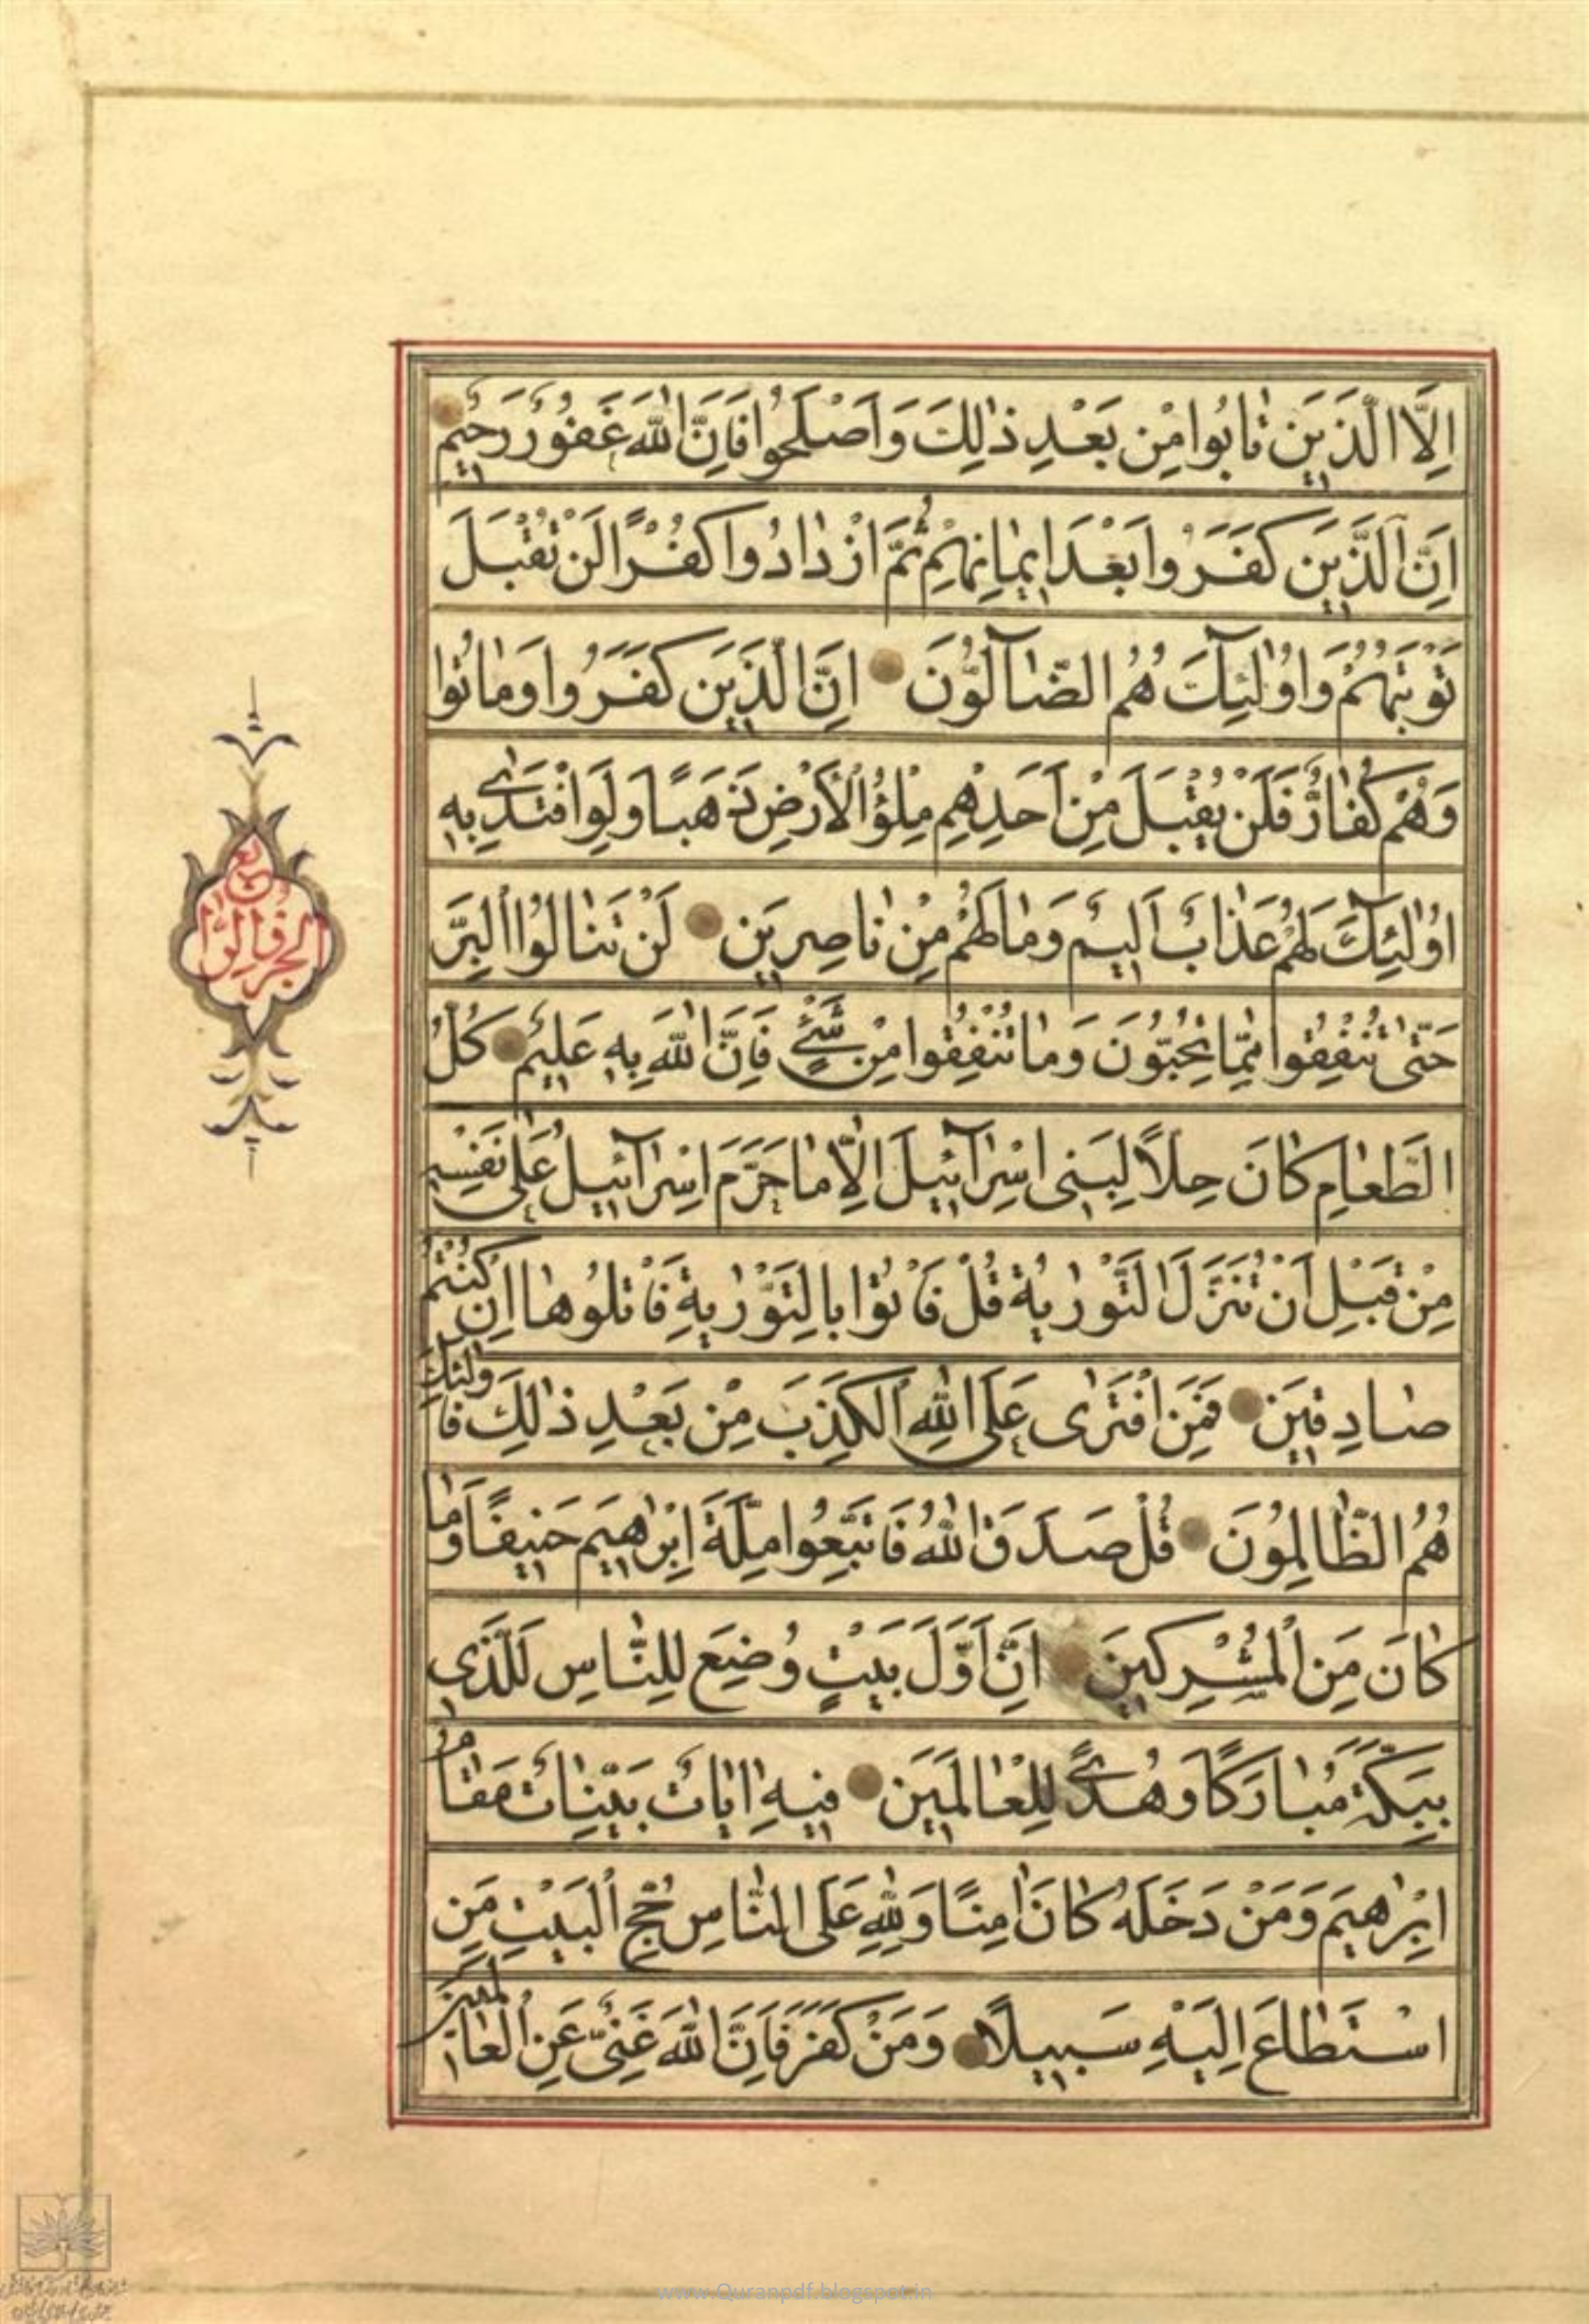 اِلَّا الَّذينَ تٰابُوا مِنْ بَعْدِ ذٰلِكَ وَاَصْلَحُوا فَاِنَّ اللّٰهَ غَفُورٌ رَحيمٌ
اِنَّ الَّذينَ كَفَرُوا بَعْدَ ايمٰانِهِمْ ثُمَّ ازْدٰادُوا كُفْرًا لَنْ تُقْبَلَ
تَوْبَتُهُمْ وَاُولٰئِكَ هُمُ الضّٰآلُّونَ اِنَّ الَّذينَ كَفَرُوا وَمٰاتُوا
وَهُمْ كُفّٰارٌ فَلَنْ يُقْبَلَ مِنْ اَحَدِهِمْ مِلْؤُ الْاَرْضِ ذَهَبًا وَلَوِ افْتَدٰى بِهِ
اُولٰئِكَ لَهُمْ عَذٰابٌ اَليمٌ وَمٰا لَهُمْ مِنْ نٰاصِرينَ لَنْ تَنٰالُوا الْبِرَّ
حَتّٰى تُنْفِقُوا مِمّٰا تُحِبُّونَ وَمٰا تُنْفِقُوا مِنْ شَيْءٍ فَاِنَّ اللّٰهَ بِهِ عَليمٌ كُلُّ
الطَّعٰامِ كٰانَ حِلًّا لِبَني اِسْرٰآئيلَ اِلّٰا مٰا حَرَّمَ اِسْرٰآئيلُ عَلٰى نَفْسِهِ
مِنْ قَبْلِ اَنْ تُنَزَّلَ التَّوْرٰيةُ قُلْ فَأْتُوا بِالتَّوْرٰيةِ فَاتْلُوهٰا اِنْ كُنْتُمْ
صٰادِقينَ فَمَنِ افْتَرٰى عَلَى اللّٰهِ الْكَذِبَ مِنْ بَعْدِ ذٰلِكَ فَاُولٰئِكَ
هُمُ الظّٰالِمُونَ قُلْ صَدَقَ اللّٰهُ فَاتَّبِعُوا مِلَّةَ اِبْرٰهيمَ حَنيفًا وَمٰا
كٰانَ مِنَ الْمُشْرِكينَ اِنَّ اَوَّلَ بَيْتٍ وُضِعَ لِلنّٰاسِ لَلَّذي
بِبَكَّةَ مُبٰارَكًا وَهُدًى لِلْعٰالَمينَ فيهِ اٰيٰاتٌ بَيِّنٰاتٌ مَقٰامُ
اِبْرٰهيمَ وَمَنْ دَخَلَهُ كٰانَ اٰمِنًا وَلِلّٰهِ عَلَى النّٰاسِ حِجُّ الْبَيْتِ مَنِ
اسْتَطٰاعَ اِلَيْهِ سَبيلًا وَمَنْ كَفَرَ فَاِنَّ اللّٰهَ غَنِيٌّ عَنِ الْعٰالَمينَ
www.Quranpdf.blogspot.in